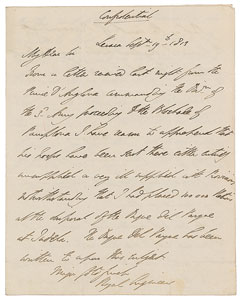 Confidential
Lesaca Septr 9th 1813
My dear Sir
From a letter received last night from the
Prince d'Anglona commanding the Dn of
the 3d Army proceeding to the Blockade of
Pamplona I have reason to apprehend that
his troops have been sent there either entirely
unsupplied or very ill supplied with Provisions
notwithstanding that I had placed
at the disposal of the Duque del Parque
at Tudela. The Duque del Parque has been
written to upon this subject.
Major
Royal Engineers